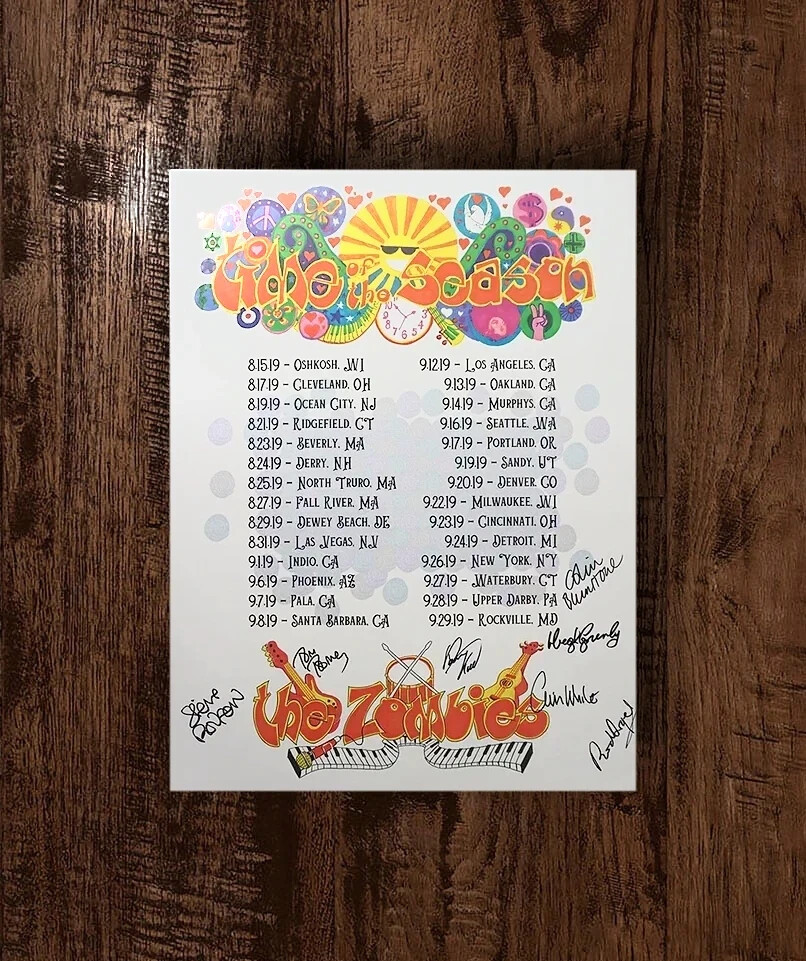 time of the season
8.15.19 – Oshkosh, WI
8.17.19 – Cleveland, OH
8.19.19 – Ocean City, NJ
8.21.19 – Ridgefield, CT
8.23.19 – Beverly, MA
8.24.19 – Derry, NH
8.25.19 – North Truro, MA
8.27.19 – Fall River, MA
8.29.19 – Dewey Beach, DE
8.31.19 – Las Vegas, NV
9.1.19 – Indio, CA
9.6.19 – Phoenix, AZ
9.7.19 – Pala, CA
9.8.19 – Santa Barbara, CA
9.12.19 – Los Angeles, CA
9.13.19 – Oakland, CA
9.14.19 – Murphys, CA
9.16.19 – Seattle, WA
9.17.19 – Portland, OR
9.19.19 – Sandy, UT
9.20.19 – Denver, CO
9.22.19 – Milwaukee, WI
9.23.19 – Cincinnati, OH
9.24.19 – Detroit, MI
9.26.19 – New York, NY
9.27.19 – Waterbury, CT
9.28.19 – Upper Darby, PA
9.29.19 – Rockville, MD
Colin
Blunstone
Hugh Grundy
Chris White
the Zombies